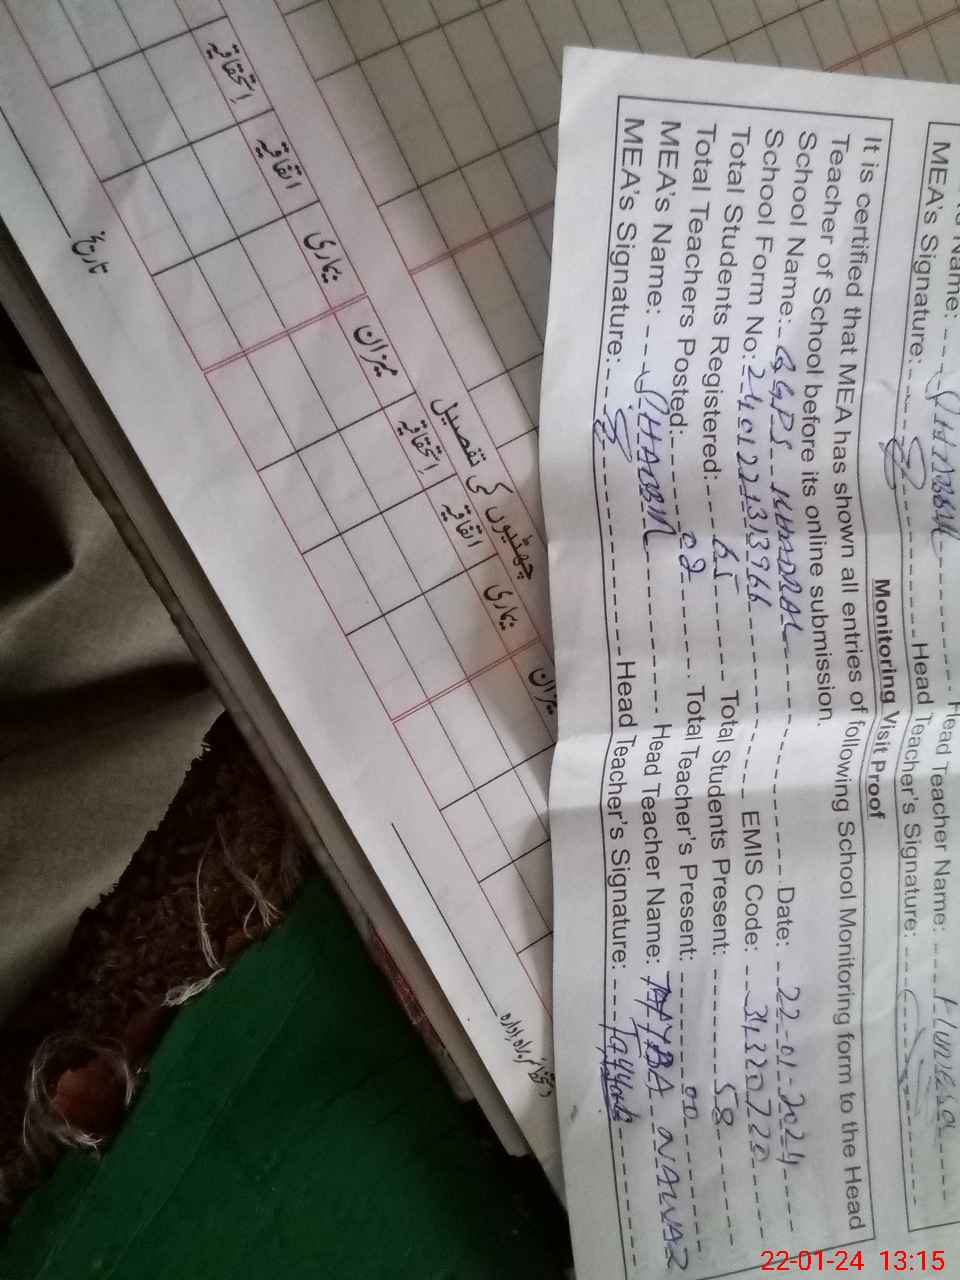 Name: Head Teacher Name:
MEA's Signature: Head Teacher's Signature:
Monitoring Visit Proof
It is certified that MEA has shown all entries of following School Monitoring form to the Head
Teacher of School before its online submission.
School Name: GGPS Date: 22-01-2024
School Form No: EMIS Code: 34320720
Total Students Registered: 65 Total Students Present: 58
Total Teachers Posted: 02 Total Teacher's Present: 00
MEA's Name: Head Teacher Name: TAYYBA NAWAZ
MEA's Signature: Head Teacher's Signature: Tayyaba
چھٹیوں کی تفصیل
استحقاقیہ
اتفاقیہ
بیماری
میزان
استحقاقیہ
اتفاقیہ
بیماری
میزان
تاریخ
دستخط سربراہ ادارہ
22-01-24 13:15